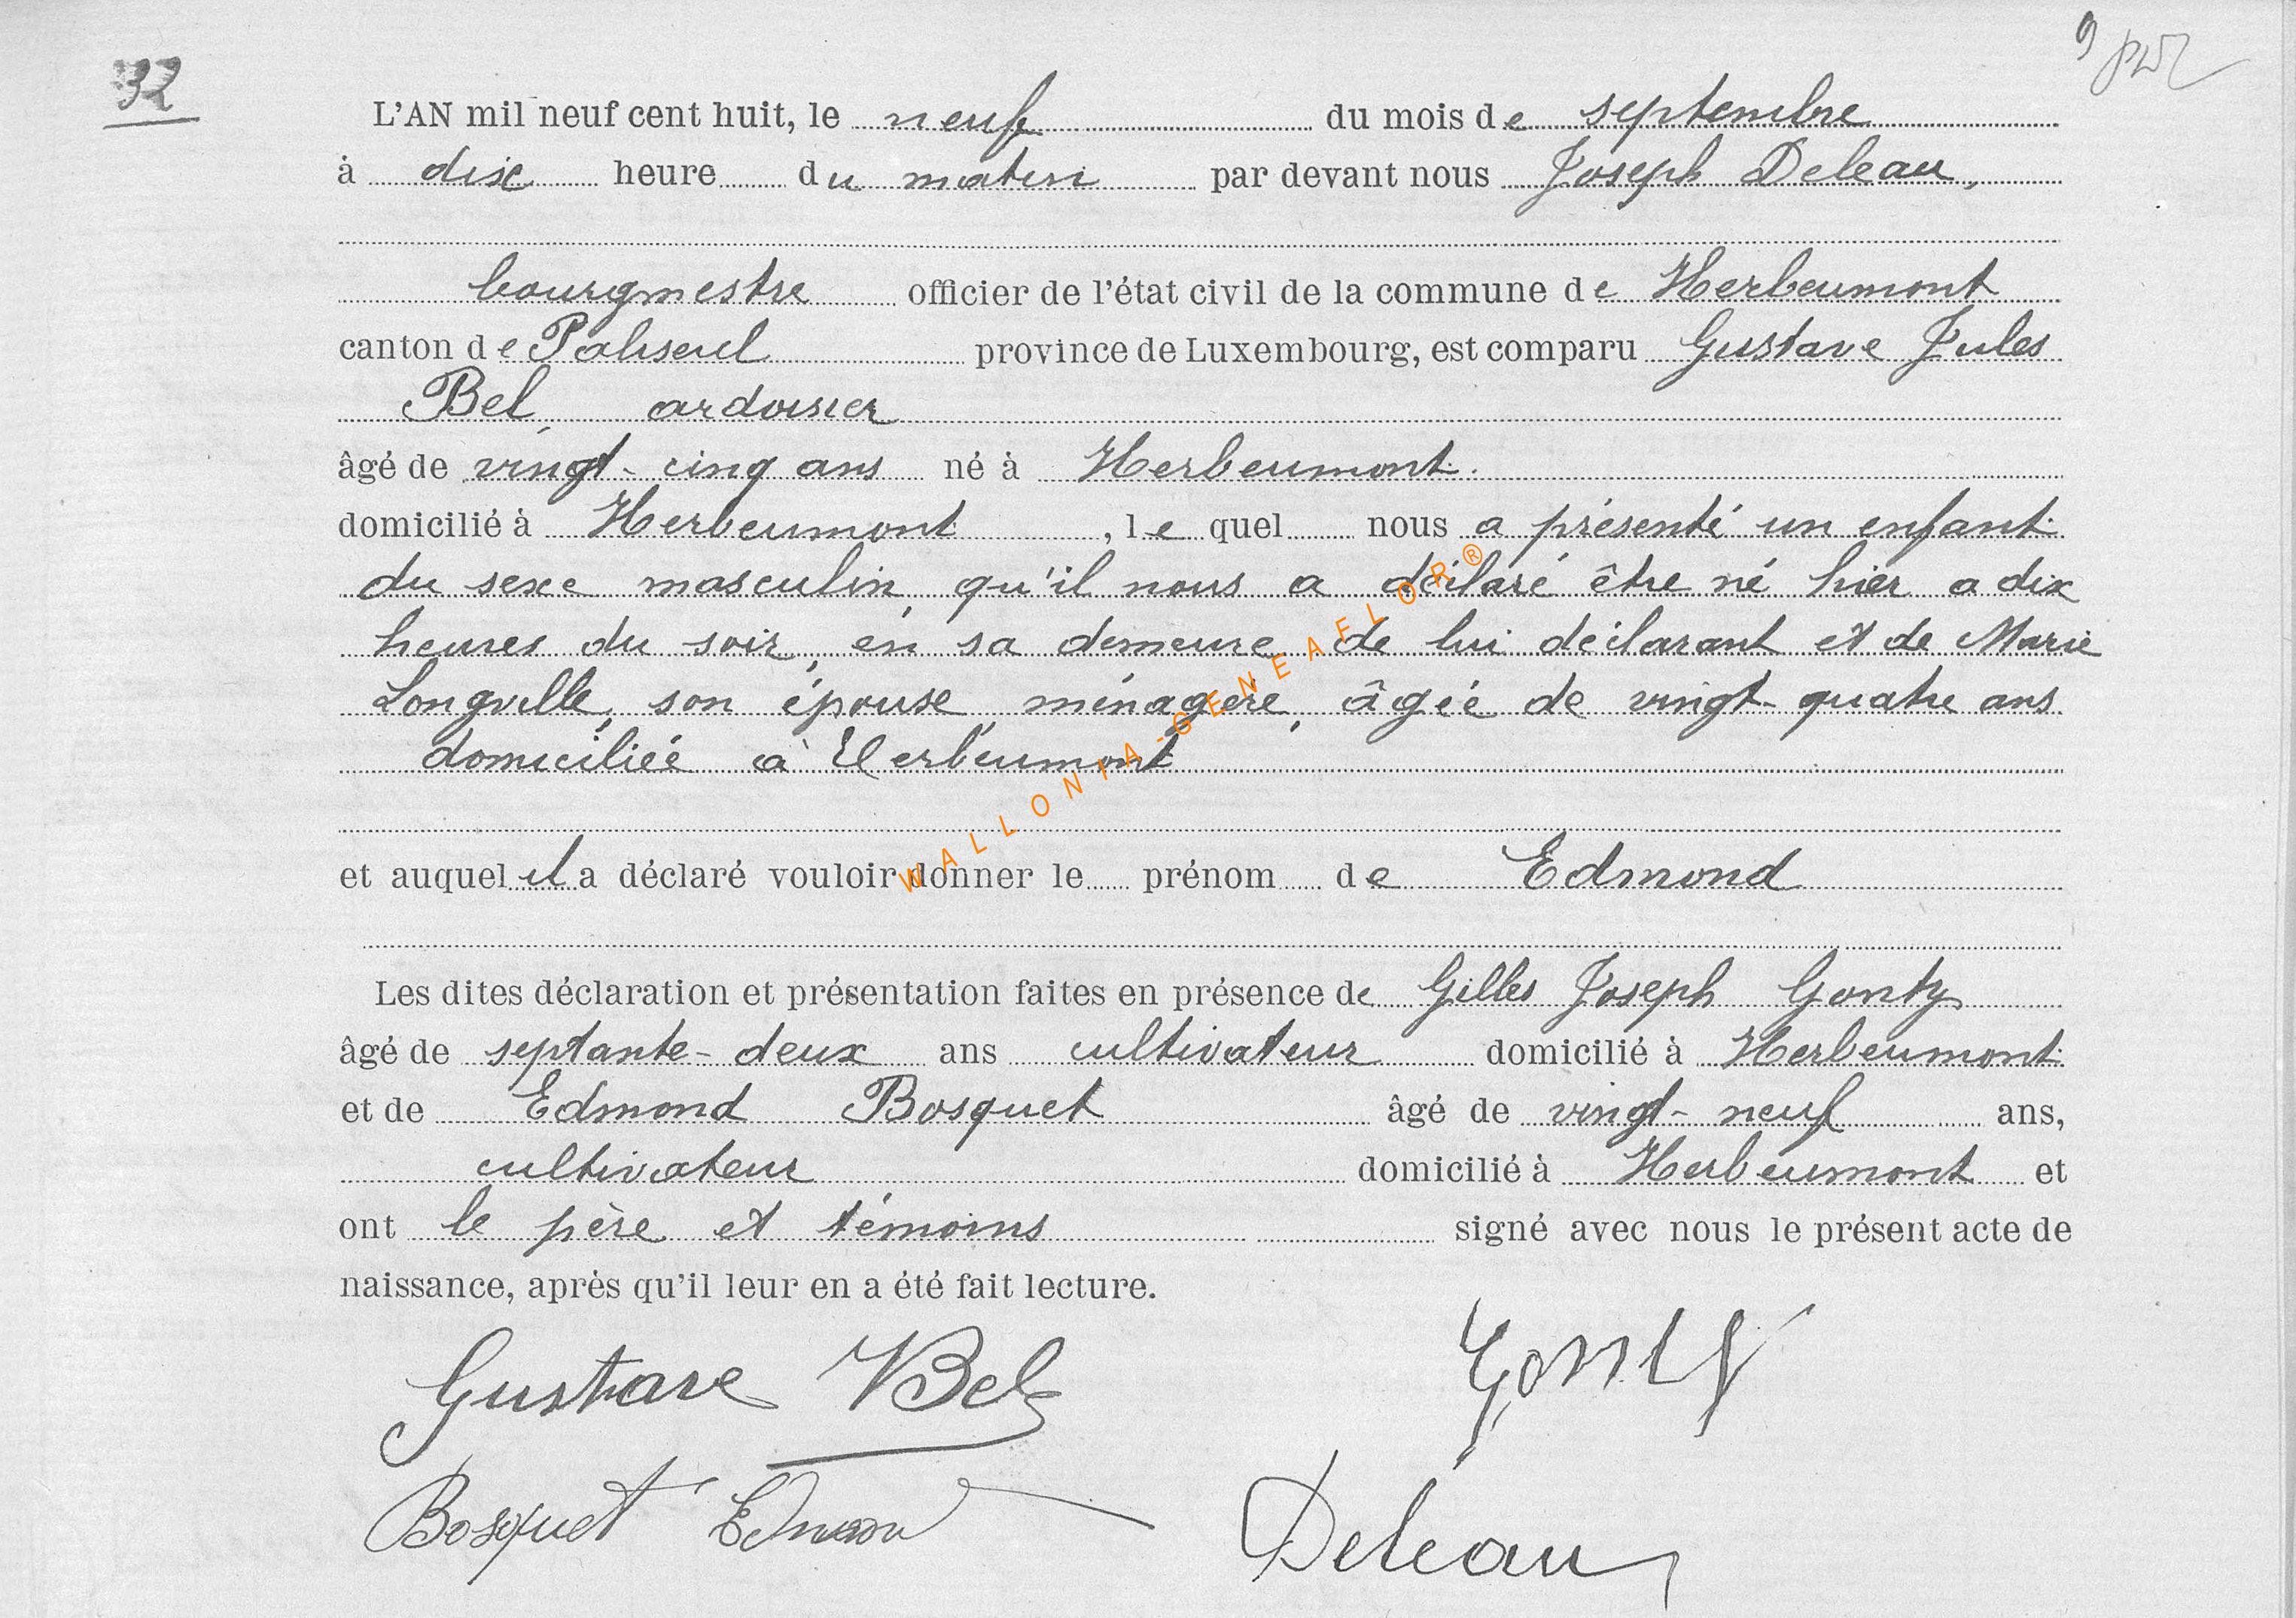 32
9
L'AN mil neuf cent huit, le neuf du mois de septembre
à dix heure du matin par devant nous Joseph Deleau,
bourgmestre officier de l'état civil de la commune de Herbeumont
canton de Paliseul province de Luxembourg, est comparu Gustave Jules
Bel ardoisier
âgé de vingt-cinq ans né à Herbeumont.
domicilié à Herbeumont, lequel nous a présenté un enfant
du sexe masculin, qu'il nous a déclaré être né hier a dix
heures du soir, en sa demeure de lui déclarant et de Marie
Longville, son épouse, ménagère, âgée de vingt-quatre ans
domiciliée à Herbeumont
et auquel il a déclaré vouloir donner le prénom de Edmond
Les dites déclaration et présentation faites en présence de Gilles Joseph Gonty
âgé de septante-deux ans cultivateur domicilié à Herbeumont
et de Edmond Bosquet âgé de vingt-neuf ans,
cultivateur domicilié à Herbeumont et
ont le père et témoins signé avec nous le présent acte de
naissance, après qu'il leur en a été fait lecture.
Gustave Bel Gonty
Bosquet Edmond Deleau
WALLONIA-GENEAELOR®